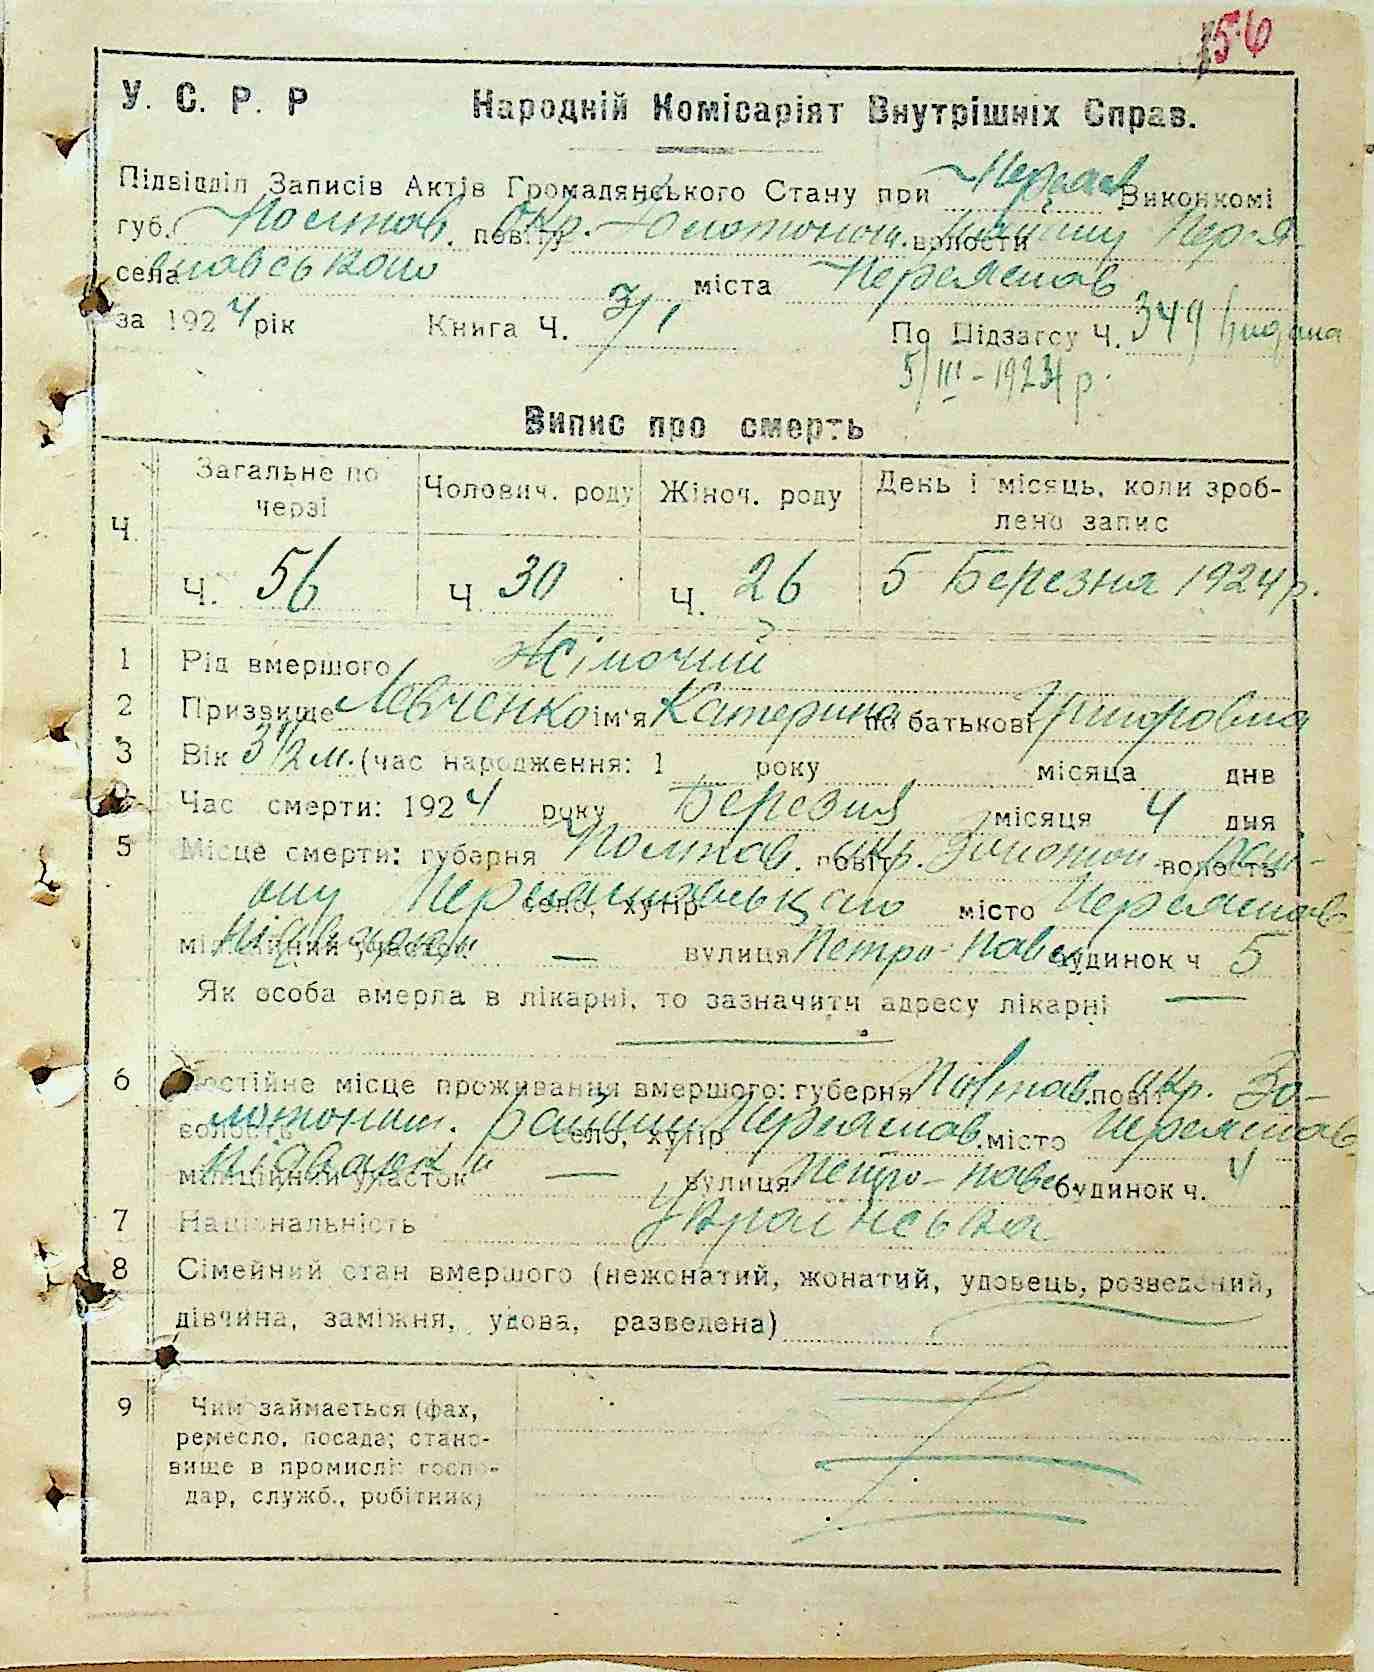 156
У. С. Р. Р Народній Комісаріят Внутрішніх Справ.
Підвідділ Записів Актів Громадянського Стану при Переяс Виконкомі
губ. Полтав. повіту Окр. Золотонош. волости Району Перея-
села славського міста Переяслав
за 1924 рік Книга Ч. 3/1 По Підзагсу Ч. 349 видана
5/III-1924 р.
Випис про смерть
Ч. Загальне по черзі Чолович. роду Жіноч. роду День і місяць, коли зроб-
лено запис
Ч. 56 Ч 30 Ч. 26 5 Березня 1924 р.
1 Рід вмершого Жіночий
2 Призвище Левченко ім'я Катерина по батькові Григоровна
3 Вік 3 1/2 м. (час народження: 1 року місяца днв
Час смерти: 1924 року Березня місяця 4 дня
5 Місце смерти: губерня Полтав. повіт окр. Золотон. волость Рай-
ону Переяславського село, хутір місто Переяслав
міліційний участок Підварки — вулиця Петро-Павл будинок ч 5
Як особа вмерла в лікарні, то зазначити адресу лікарні —
6 Постійне місце проживання вмершого: губерня Полтав. повіт окр. Зо-
волость лотонош. Району село, хутір Переяслав. місто Переяслав
міліційний участок Підварки — вулиця Петро-Павл. будинок ч. 4
7 Національність Українська
8 Сімейний стан вмершого (нежонатий, жонатий, удовець, розведений,
дівчина, заміжня, удова, разведена)
9 Чим займається (фах,
ремесло, посада; стано-
вище в промислі: госпо-
дар, служб., робітник)